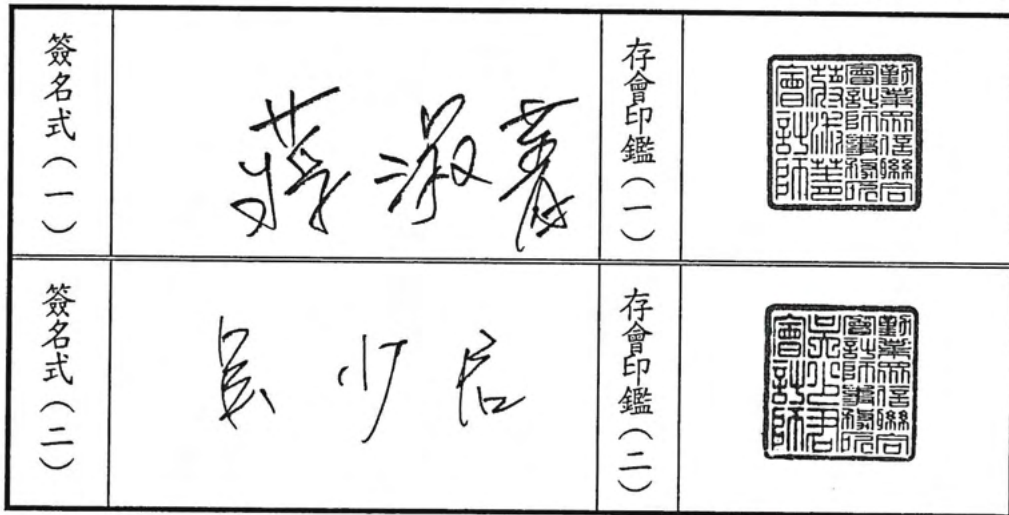 簽名式(一)
蔣淑菁
存會印鑑(一)
勤業眾信聯合
會計師事務所
蔣淑菁
會計師
簽名式(二)
吳少君
存會印鑑(二)
勤業眾信聯合
會計師事務所
吳少君
會計師